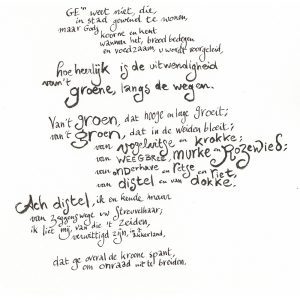 GE'n weet niet, die,
in stad gewend te wonen,
maar Gods
koorne en kent
wanneer het, brood bedegen
en voedzaam, u wordt voorgeleid,
hoe heerlijk is de uitwendigheid
van 't
groene, langs de wegen.
Van 't groen, dat hooge en lage groeit;
van 't groen, dat in de weiden bloeit;
van vogelwitse en krokke;
van WEEGBREE, murke en Rozewied;
van onderhave en retse en riet,
van distel en van dokke.
Ach distel, ik en kende maar
van zeggenswege uw Streuvelhaar;
ik liet mij, van die 't zeiden,
verwittigd zijn, in akkerland,
dat ge overal de kroone spant,
om onraad uit te breiden.